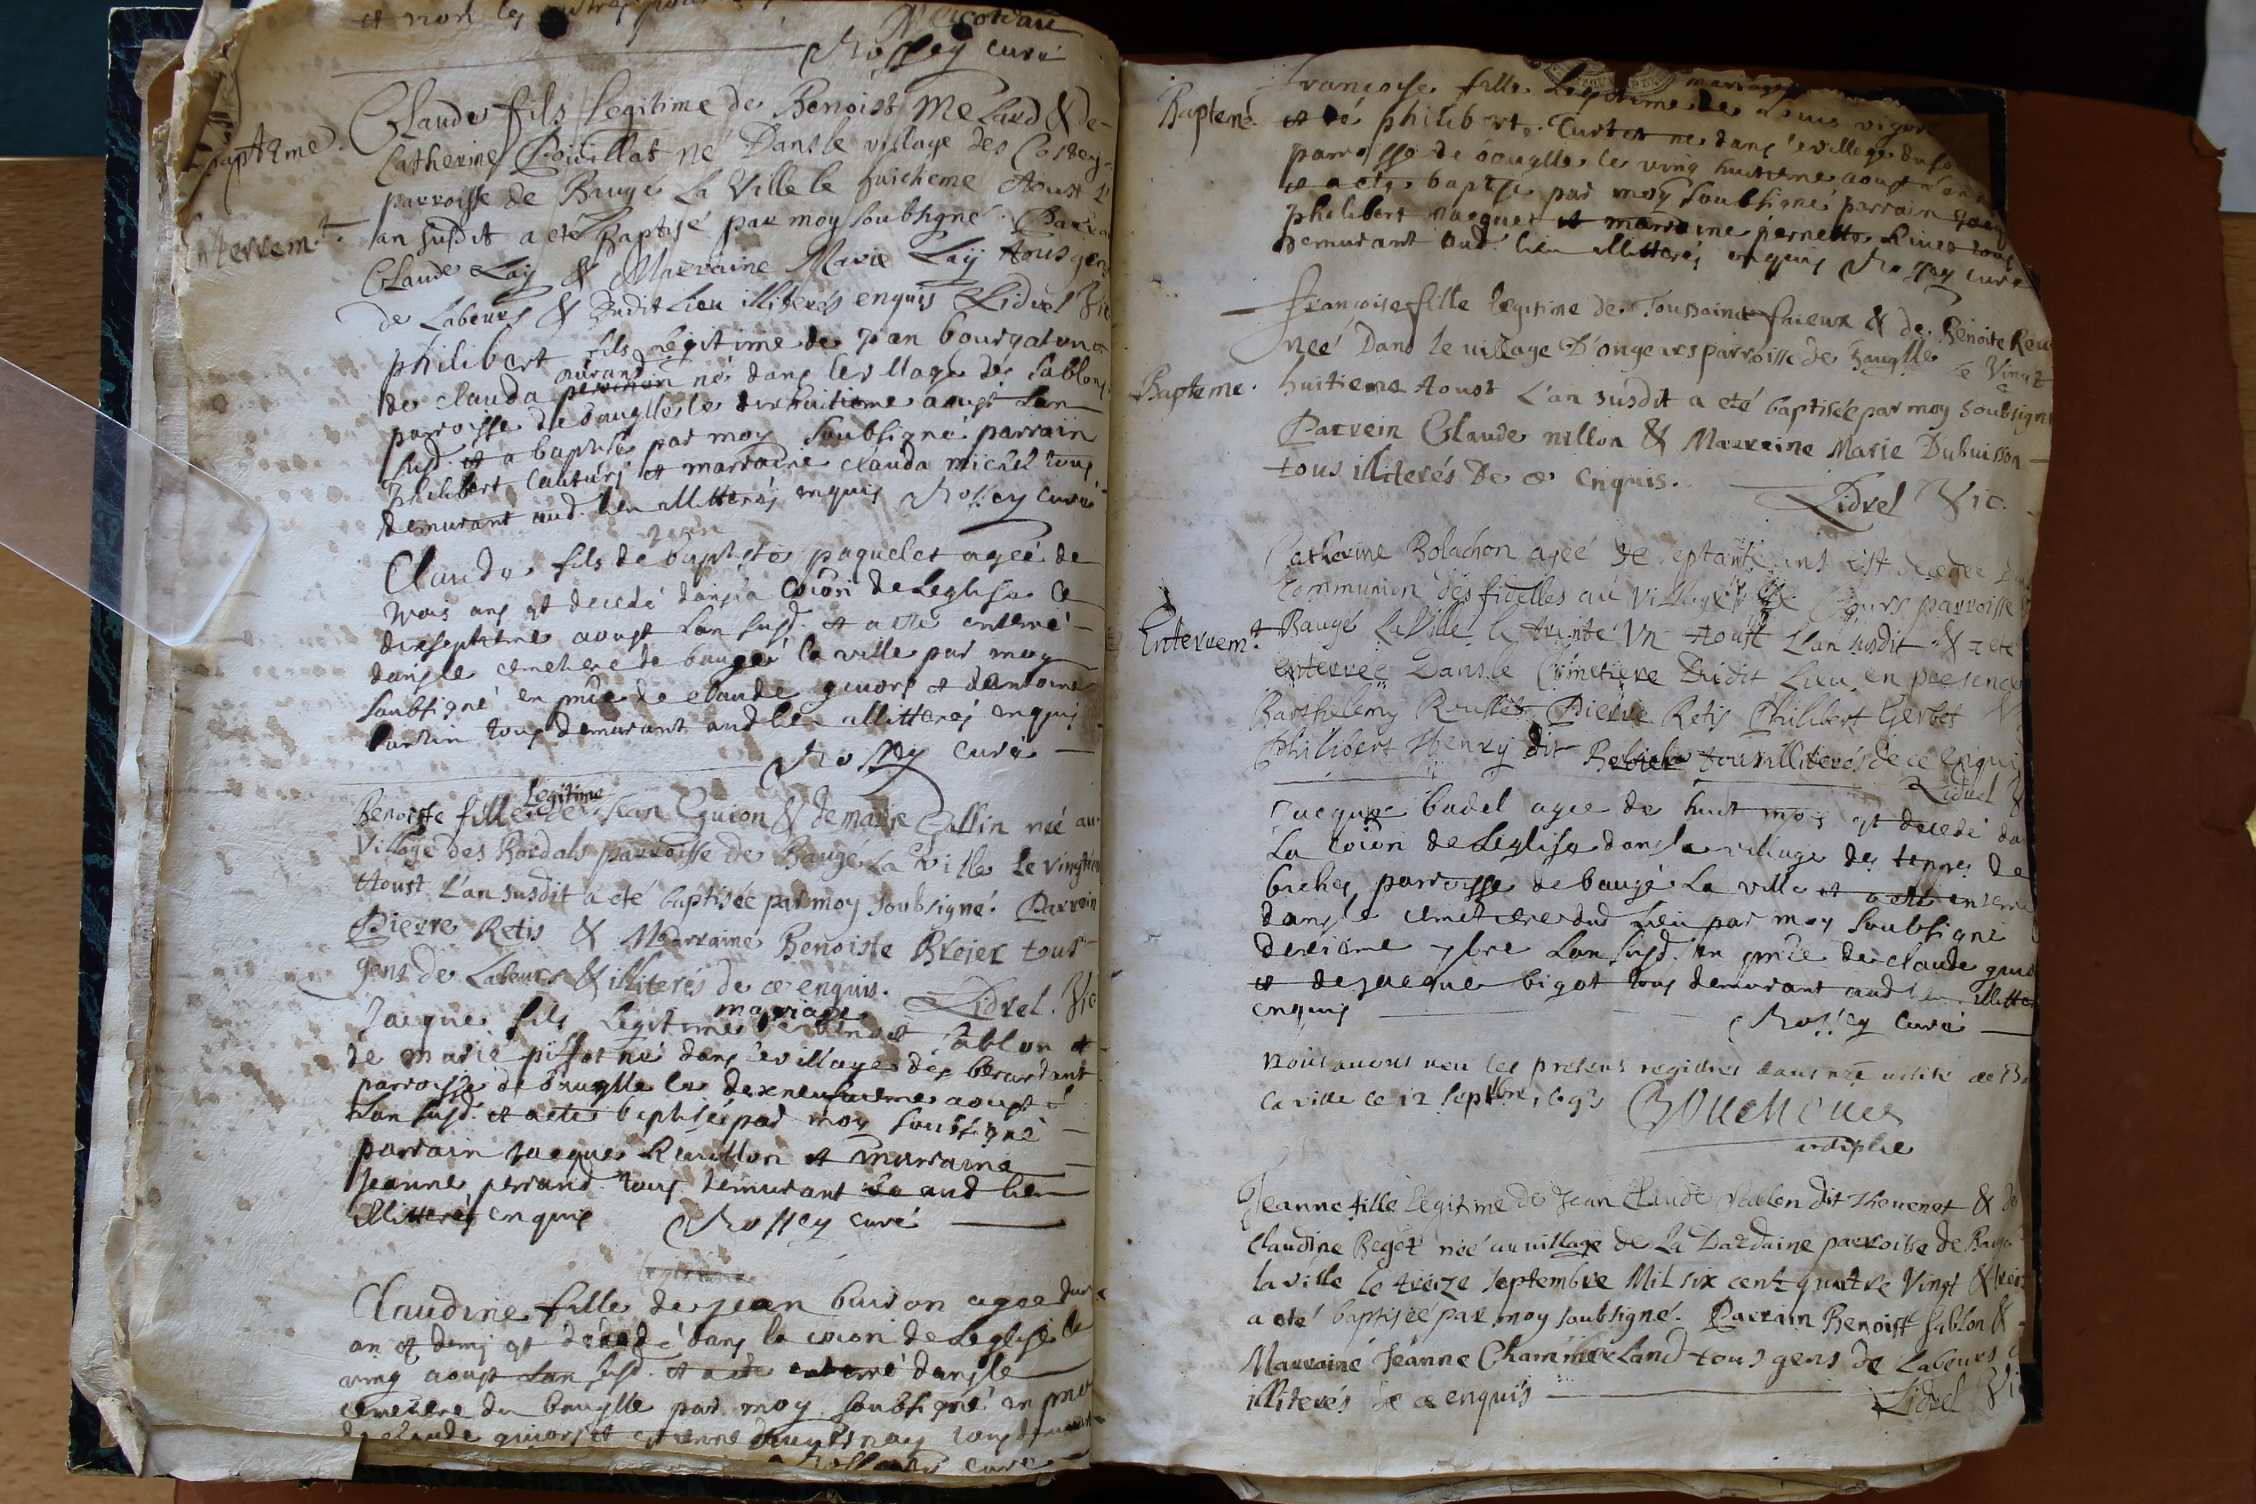 et non les autres pour
Rossey curé
Bapteme.
Claude fils legitime de Benoist Melard & de
Catherine Poivillat né Dans le village des Costey
parroisse de Baugé La Ville le huictieme Aoust L'
an susdit a eté Baptisé par moy soubsigné. Parrain
Enterrem.t
Claude Lay & Marraine Marie Lay tous gens
de Labeurs & Dudit Lieu illiterés enquis Lidrel Vic
philibert fils legitime de jean bourgat
durand
de clauda né dans le village des sablons
parroisse de baugille le dixhuitieme aoust lan
susd. et a baptisé par moy soubsigné parrain
philibert et marraine clauda michel tous
demurant aud. lieu illitterés enquis Rossey curé
jean
Claude fils de baptiste paquelet ageé de
trois ans est decedé dans la coion de Leglise le
dixseptieme aoust lan susd. et a eté enterré
dans le cemetiere de baugé la ville par moy
soubsigné en pnce de claude guiors et dantoine
tous demurant aud lieu illitterés enquis
Rossey curé
Legitime
Benoiste fille de Jean Guion & de marie Callin neé au
Village des Bordals parroisse de Baugé La Ville le vingtieme
Aoust L'an susdit a eté baptisée par moy soubsigné. Parrein
Pierre Retis & Marraine Benoiste Brejer tous
gens de Labeurs & illiterés de ce enquis. Lidrel. Vic
mariage
Jacques fils Legitime de benoit sablon et
de marie pissot né dans le village des
parroisse de baugille le dixneufvieme aoust
Lan susd. et a eté baptisé par moy soubsigné
parrain Jacques Revillon et marraine
Jeanne perrand tous demurant aud lieu
illitterés enquis Rossey curé
legitime
Claudine fille de jean buison agee dun
an et demy est decedé dans la coion de Leglise le
ving aoust Lan susd. et a eté enterré dans le
cemetiere de baugille par moy soubsigné en pnce
de claude guiors et estienne tous demurant
curé
mariage
Bapteme.
Françoise fille Legitime de Louis
et de philiberte Curtet né dans le village du
parroisse de baugille le ving huitieme aoust lan
et a eté baptisé par moy soubsigné parrain
philibert Jacquet et marraine pernette tous
demurant aud. lieu illitterés enquis Rossey curé
Françoise fille legitime de Toussainct faieux & de Benoite
neé Dans le village D'ongears parroisse de baugille le Vingt
Bapteme.
huitieme Aoust L'an susdit a eté baptisée par moy soubsigné
Parrein Claude nillon & Marreine Marie Dubuisson
tous illiterés De ce enquis.
Lidrel Vic.
Catherine Bolachon ageé de septante ans est decedeé
Communion des fidelles au Village parroisse
Enterrem.t
Baugé La Ville le trente Vn Aoust L'an susdit & a eté
enterreé Dans le Cimetiere Dudit Lieu en presence
Barthelemy Roussét Pierre Retis Philibert Gerbet
Philibert Henry dit tous illiterés de ce enquis
Lidrel
Jacque badel agee de huit mois est decedé dans
La coion de Leglise dans le village des terres de
biches parroisse de baugé La ville et a eté enterré
dans le cemetiere dud lieu par moy soubsigné
deuxieme 7bre Lan susd. en pnce de claude
et de jacque bigot tous demurant aud lieu illitterés
enquis
Rossey curé
nous avons veu les presens registres dans nre visite de
La ville ce 12 septbre 1693 Bouchouer
archiptre
Jeanne fille Legitime de Jean Claude sablon dit Thevenet & de
Claudine Begot neé au village de La Dardaine parroisse de Baugé
la ville le treize septembre Mil six cent quatre Vingt & treize
a eté baptiseé par moy soubsigné. Parrain Benoist sablon &
Marraine Jeanne Chamberland tous gens de Labeurs
illiterés de ce enquis
Lidrel Vi